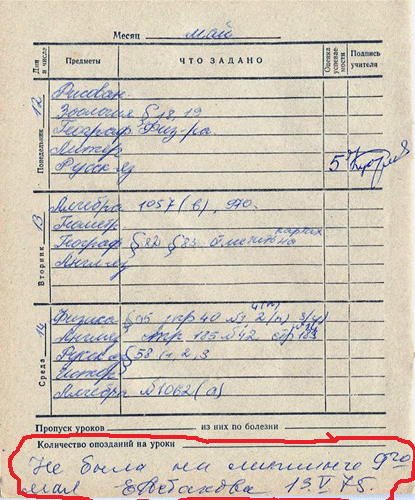 Месяц май
Дни и числа Предметы ЧТО ЗАДАНО Оценка успевае-мости Подпись учителя
Понедельник 12
Рисован.
Зоология § 18, 19
Географ Физ-ра.
Литер
Русск яз 5
Вторник 13
Алгебра 1057 (в), 970.
Геометр
Географ § 82 § 83 Отметить на картах
Англ яз
Среда 14
Физика § 95 стр 40 №1, 2
Англ яз стр 185 №42 стр 183
Русск яз § 58 (1, 2, 3
Истор
Алгебра №1062 (а)
Пропуск уроков из них по болезни
Количество опозданий на уроки
Не была на митинге 9го
мая 13 V 75.